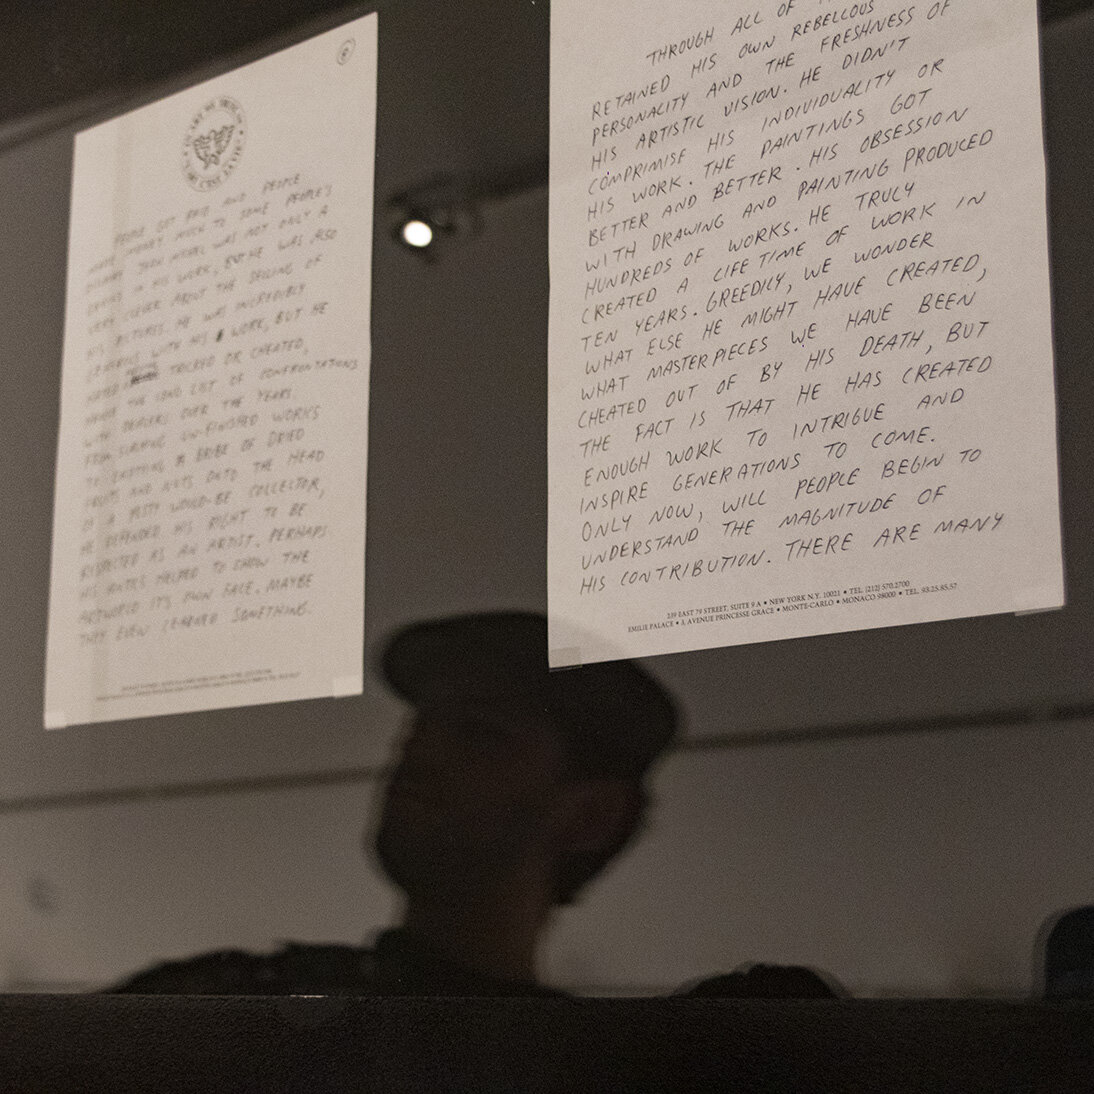 PEOPLE GET PAID AND PEOPLE
MONEY MUCH TO SOME PEOPLE'S
WAS NOT ONLY A
IN HIS WORK, BUT HE WAS ALSO
VERY CLEVER ABOUT THE SELLING OF
HIS PICTURES. HE WAS INCREDIBLY
GENEROUS WITH HIS WORK, BUT HE
HATED TRICKED OR CHEATED,
THE LONG LIST OF CONFRONTATIONS
WITH DEALERS OVER THE YEARS.
FROM SLASHING UN-FINISHED WORKS
TO EMPTYING A BRIBE OF DRIED
FRUITS AND NUTS ONTO THE HEAD
OF A PUSHY WOULD-BE COLLECTOR,
HE DEFENDED HIS RIGHT TO BE
RESPECTED AS AN ARTIST. PERHAPS
HIS ANTICS HELPED TO SHOW THE
ARTWORLD IT'S OWN FACE. MAYBE
THEY EVEN LEARNED SOMETHING.
THROUGH ALL OF
RETAINED HIS OWN REBELLOUS
PERSONALITY AND THE FRESHNESS OF
HIS ARTISTIC VISION. HE DIDN'T
COMPRIMISE HIS INDIVIDUALITY OR
HIS WORK. THE PAINTINGS GOT
BETTER AND BETTER. HIS OBSESSION
WITH DRAWING AND PAINTING PRODUCED
HUNDREDS OF WORKS. HE TRULY
CREATED A LIFE TIME OF WORK IN
TEN YEARS. GREEDILY, WE WONDER
WHAT ELSE HE MIGHT HAVE CREATED,
WHAT MASTERPIECES WE HAVE BEEN
CHEATED OUT OF BY HIS DEATH, BUT
THE FACT IS THAT HE HAS CREATED
ENOUGH WORK TO INTRIGUE AND
INSPIRE GENERATIONS TO COME.
ONLY NOW, WILL PEOPLE BEGIN TO
UNDERSTAND THE MAGNITUDE OF
HIS CONTRIBUTION. THERE ARE MANY
239 EAST 79 STREET, SUITE 9 A • NEW YORK N.Y. 10021 • TEL (212) 570.2700
EMILIE PALACE • 3, AVENUE PRINCESSE GRACE • MONTE-CARLO • MONACO 98000 • TEL. 93.25.85.57